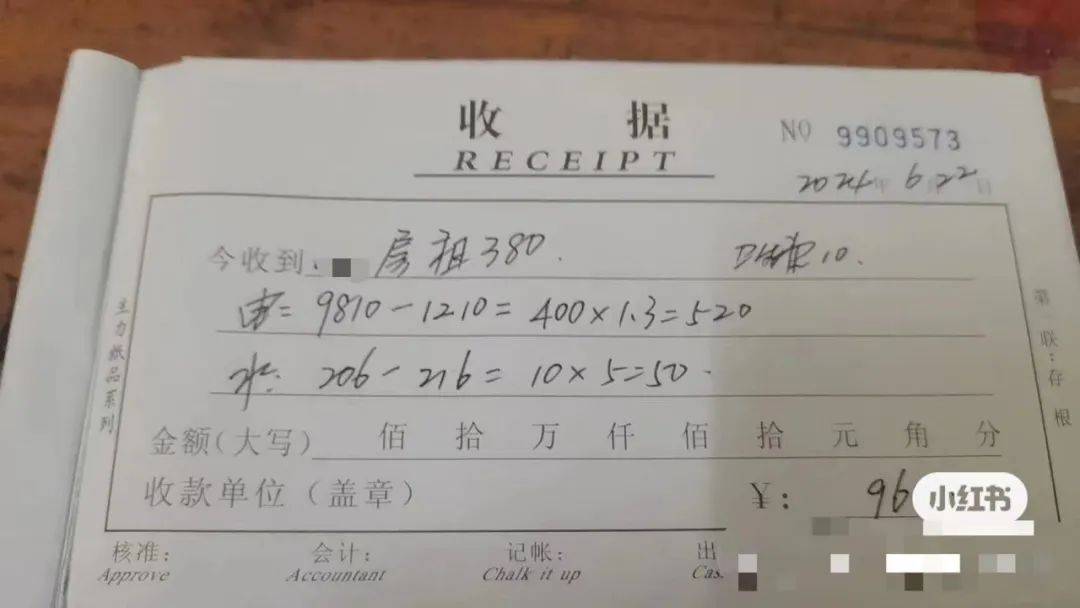 收 据
RECEIPT
NO 9909573
2024年6月22日
今收到 房租380. 卫生费10.
电= 9810-1210= 400×1.3=520
水: 206-216= 10×5=50.
金额(大写) 佰 拾 万 仟 佰 拾 元 角 分
收款单位(盖章) ¥: 96
小红书
核准: 会计: 记帐: 出
Approve Accountant Chalk it up Cas
主力纸品系列
第一联:存根